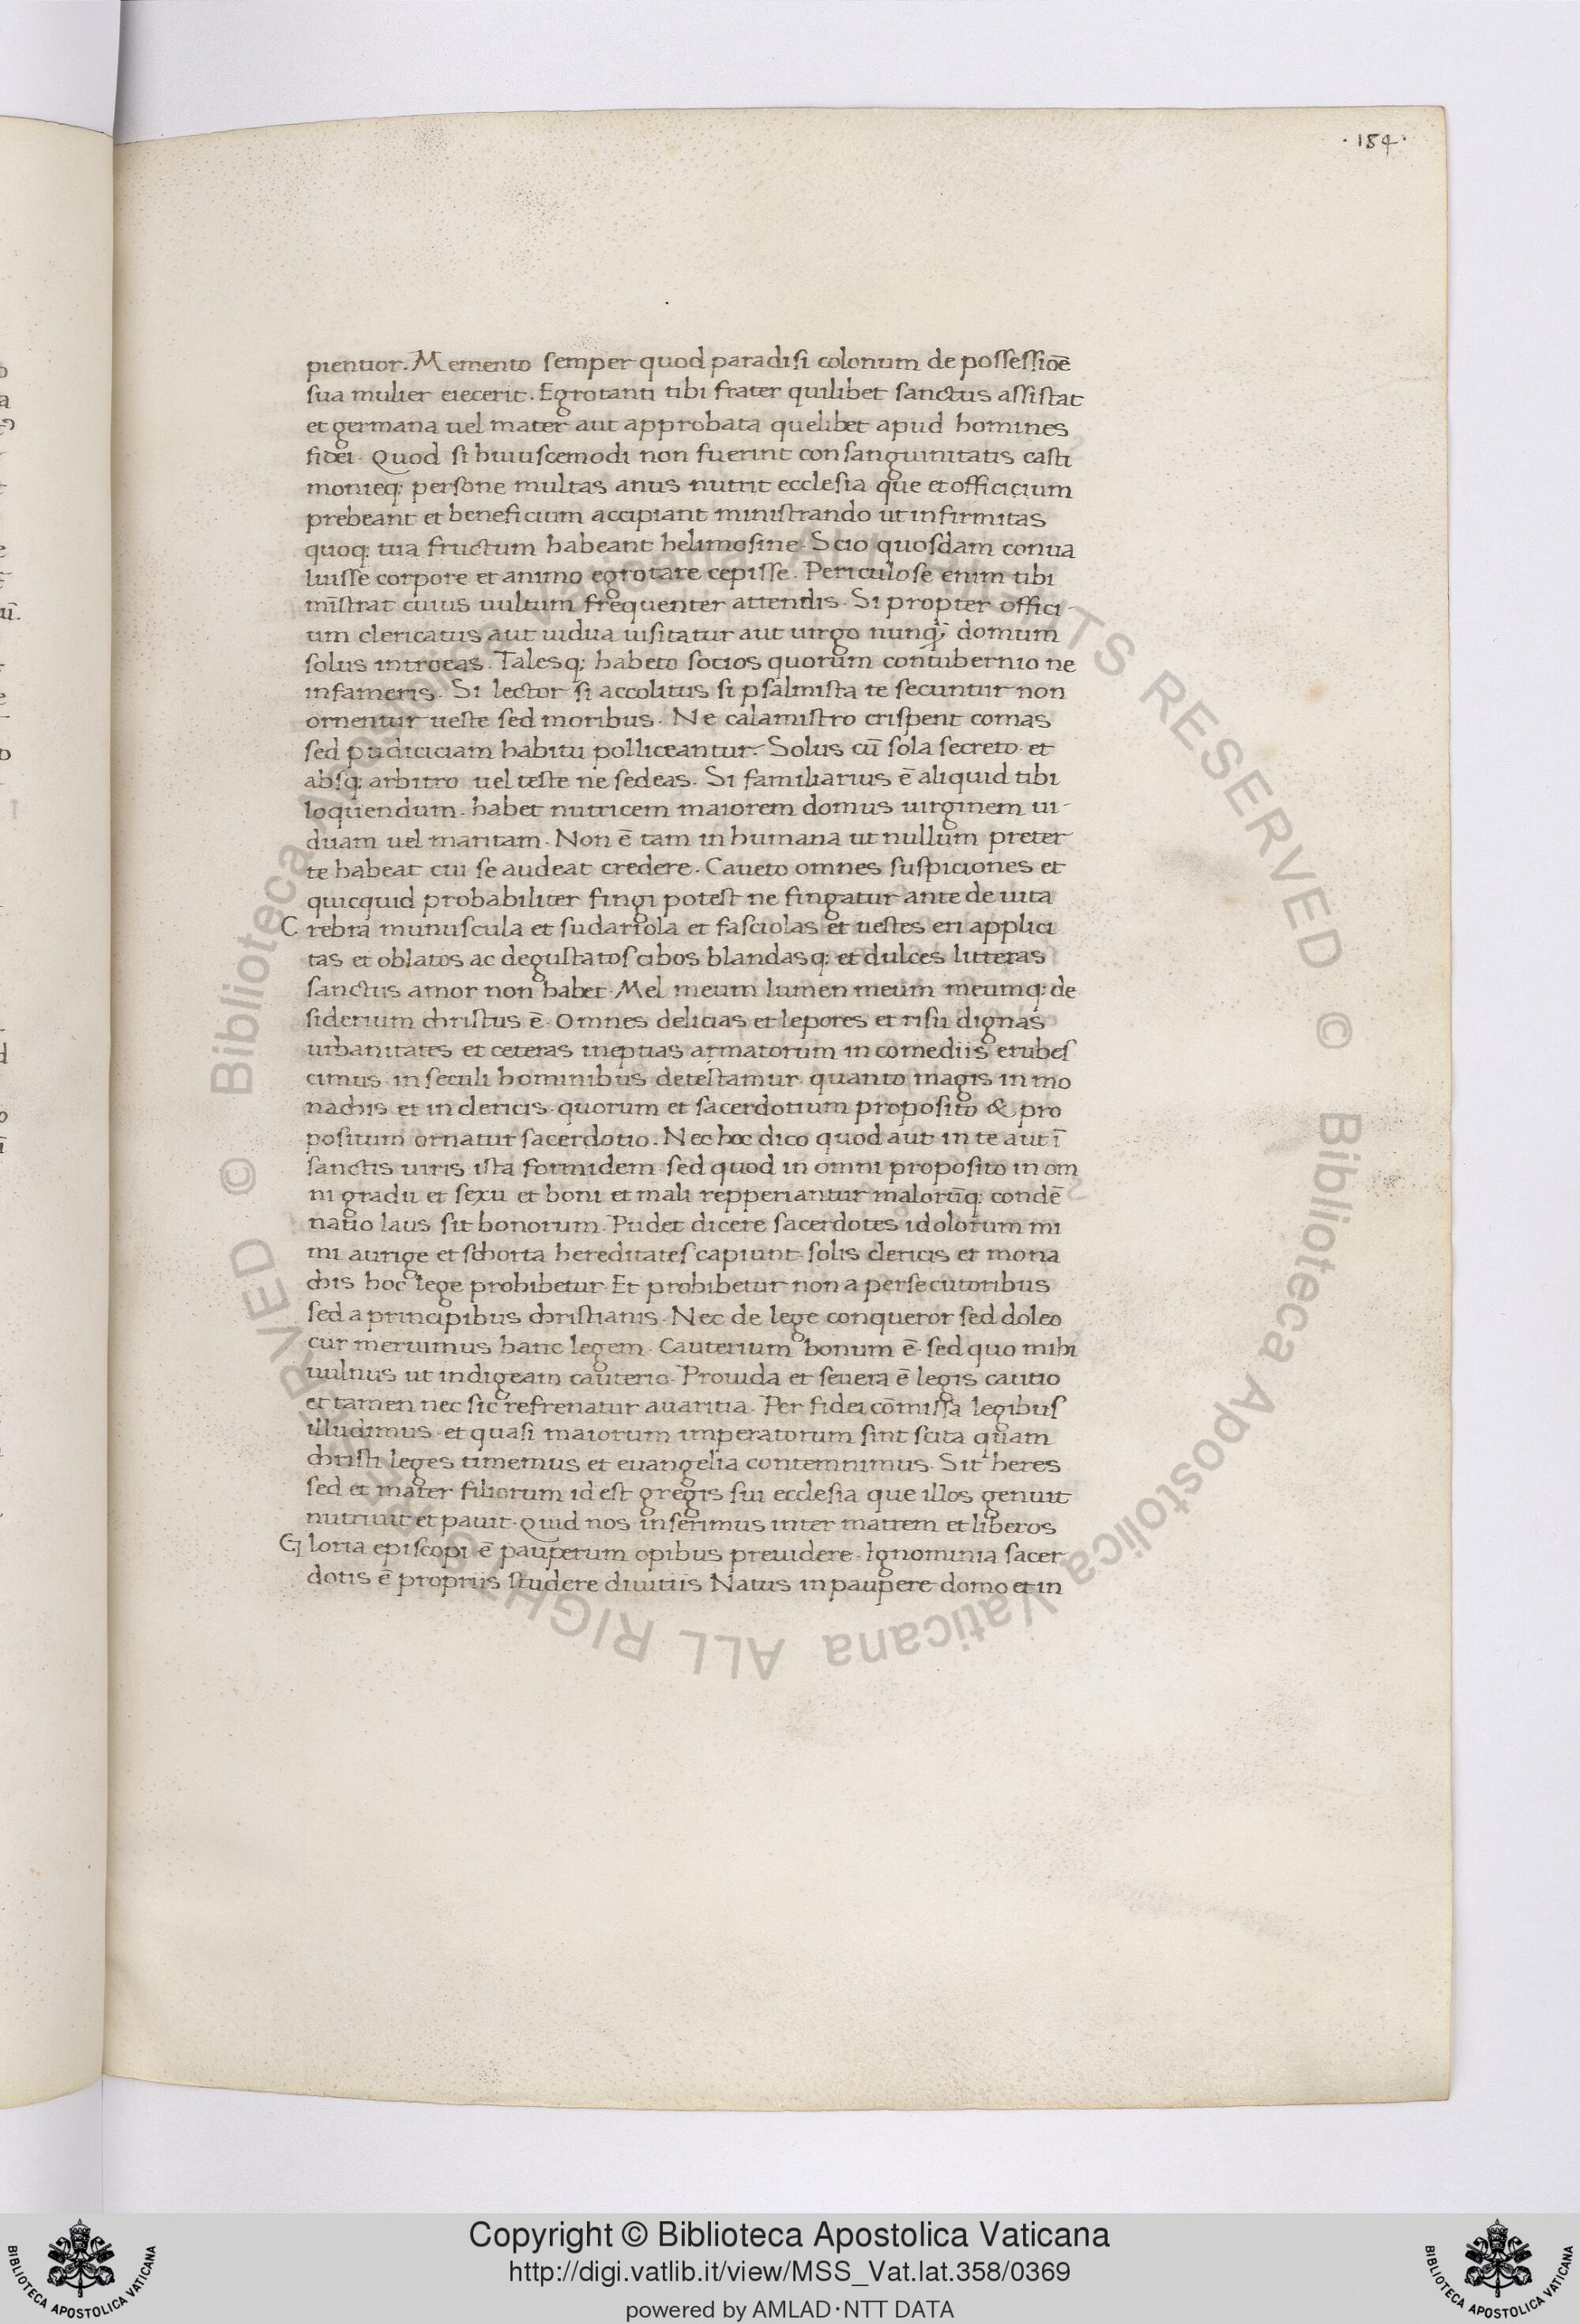 ·184·
pientior. Memento semper quod paradisi colonum de possessiōe
sua mulier eiecerit. Egrotanti tibi frater quilibet sanctus assistat
et germana uel mater aut approbata quelibet apud homines
fidei. Quod si huiuscemodi non fuerint consanguinitatis casti
monieq; persone multas anus nutrit ecclesia que et officicium
prebeant et beneficium accipiant ministrando ut infirmitas
quoq; tua fructum habeant helimosine. Scio quosdam conua
luisse corpore et animo egrotare cepisse. Periculose enim tibi
mīstrat cuius uultum frequenter attendis. Si propter offici-
um clericatus aut uidua uisitatur aut uirgo nunq̄ domum
solus introeas. Talesq; habeto socios quorum contubernio ne
infameris. Si lector si accolitus si psalmista te secuntur non
ornentur ueste sed moribus. Ne calamistro crispent comas
sed pudiciciam habitu polliceantur. Solus cū sola secreto et
absq; arbitro uel teste ne sedeas. Si familiarius ē aliquid tibi
loquendum. habet nutricem maiorem domus uirginem ui-
duam uel maritam. Non ē tam inhumana ut nullum preter
te habeat cui se audeat credere. Caueto omnes suspiciones et
quicquid probabiliter fingi potest ne fingatur ante deuita
Crebra munuscula et sudariola et fasciolas et uestes eri applici
tas et oblatos ac degustatos cibos blandasq; et dulces litteras
sanctus amor non habet. Mel meum lumen meum meumq; de
siderium christus ē. Omnes delicias et lepores et risu dignas
urbanitates et ceteras ineptias armatorum in comediis erubes
cimus in seculi hominibus detestamur quanto magis in mo
nachis et in clericis. quorum et sacerdotium proposito & pro
positum ornatur sacerdotio. Nec hoc dico quod aut in te aut ī
sanctis uiris ista formidem. sed quod in omni proposito in om
ni gradu et sexu et boni et mali repperiantur malorūq; condē
natio laus sit bonorum. Pudet dicere sacerdotes idolorum mi
mi aurige et schorta hereditates capiunt. solis clericis et mona
chis hoc lege prohibetur. Et prohibetur non a persecutoribus
sed a principibus christianis. Nec de lege conqueror sed doleo
cur meruimus hanc legem. Cauterium bonum ē. sed quo mihi
uulnus ut indigeam cauterio. Prouida et seuera ē legis cautio
et tamen nec sic refrenatur auaritia. Per fidei cōmissa legibus
illudimus. et quasi maiorum imperatorum sint scita quam
christi leges timemus et euangelia contemnimus. Sit heres
sed et mater filiorum id est gregis sui ecclesia que illos genuit
nutriuit et pauit. Quid nos inserimus inter matrem et liberos
Gloria episcopi ē pauperum opibus preuidere. Ignominia sacer
dotis ē propriis studere diuitiis Natus in paupere domo et in
© Biblioteca Apostolica Vaticana ALL RIGHTS RESERVED © Biblioteca Apostolica Vaticana ALL RIGHTS RESERVED
Copyright © Biblioteca Apostolica Vaticana
http://digi.vatlib.it/view/MSS_Vat.lat.358/0369
powered by AMLAD·NTT DATA
BIBLIOTECA APOSTOLICA VATICANA
BIBLIOTECA APOSTOLICA VATICANA